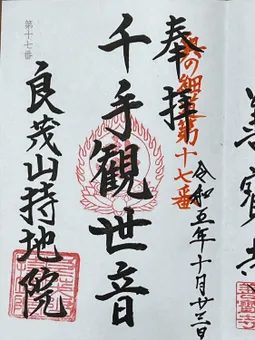 奉拝
奥の細道第十七番
令和五年十月廿三日
千手観世音
良茂山持地院
第十七番
善寳寺